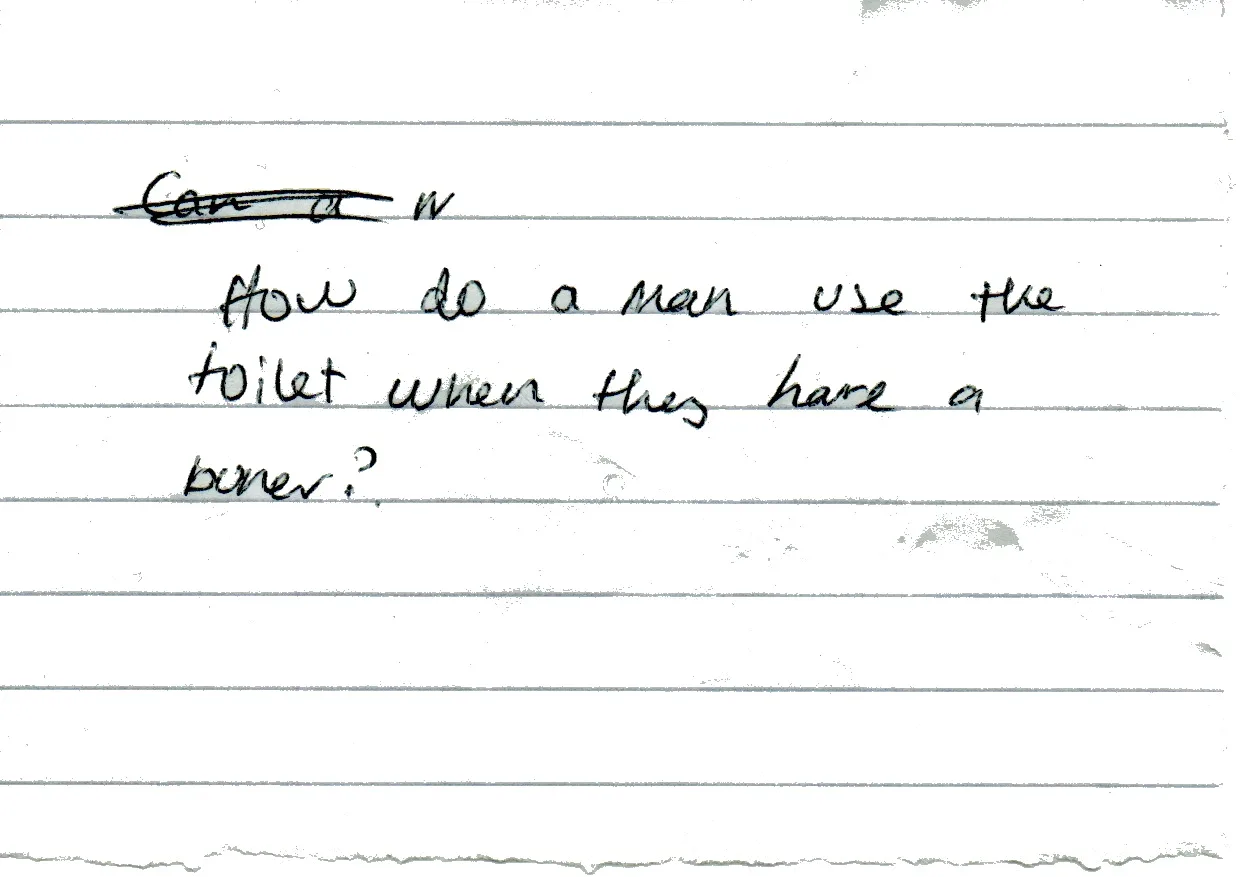 Can a W
How do a man use the
toilet when they have a
boner?